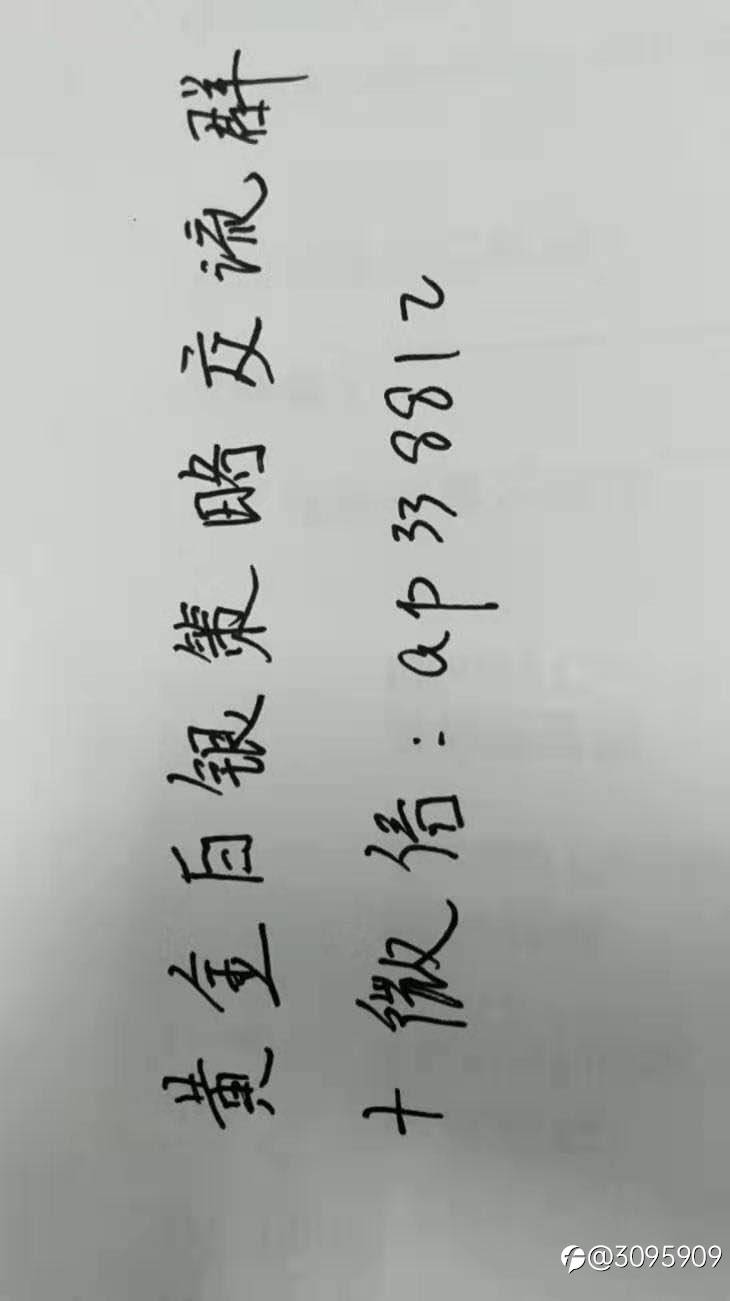 黄金白银策略交流群
+微信:ap338812
@3095909